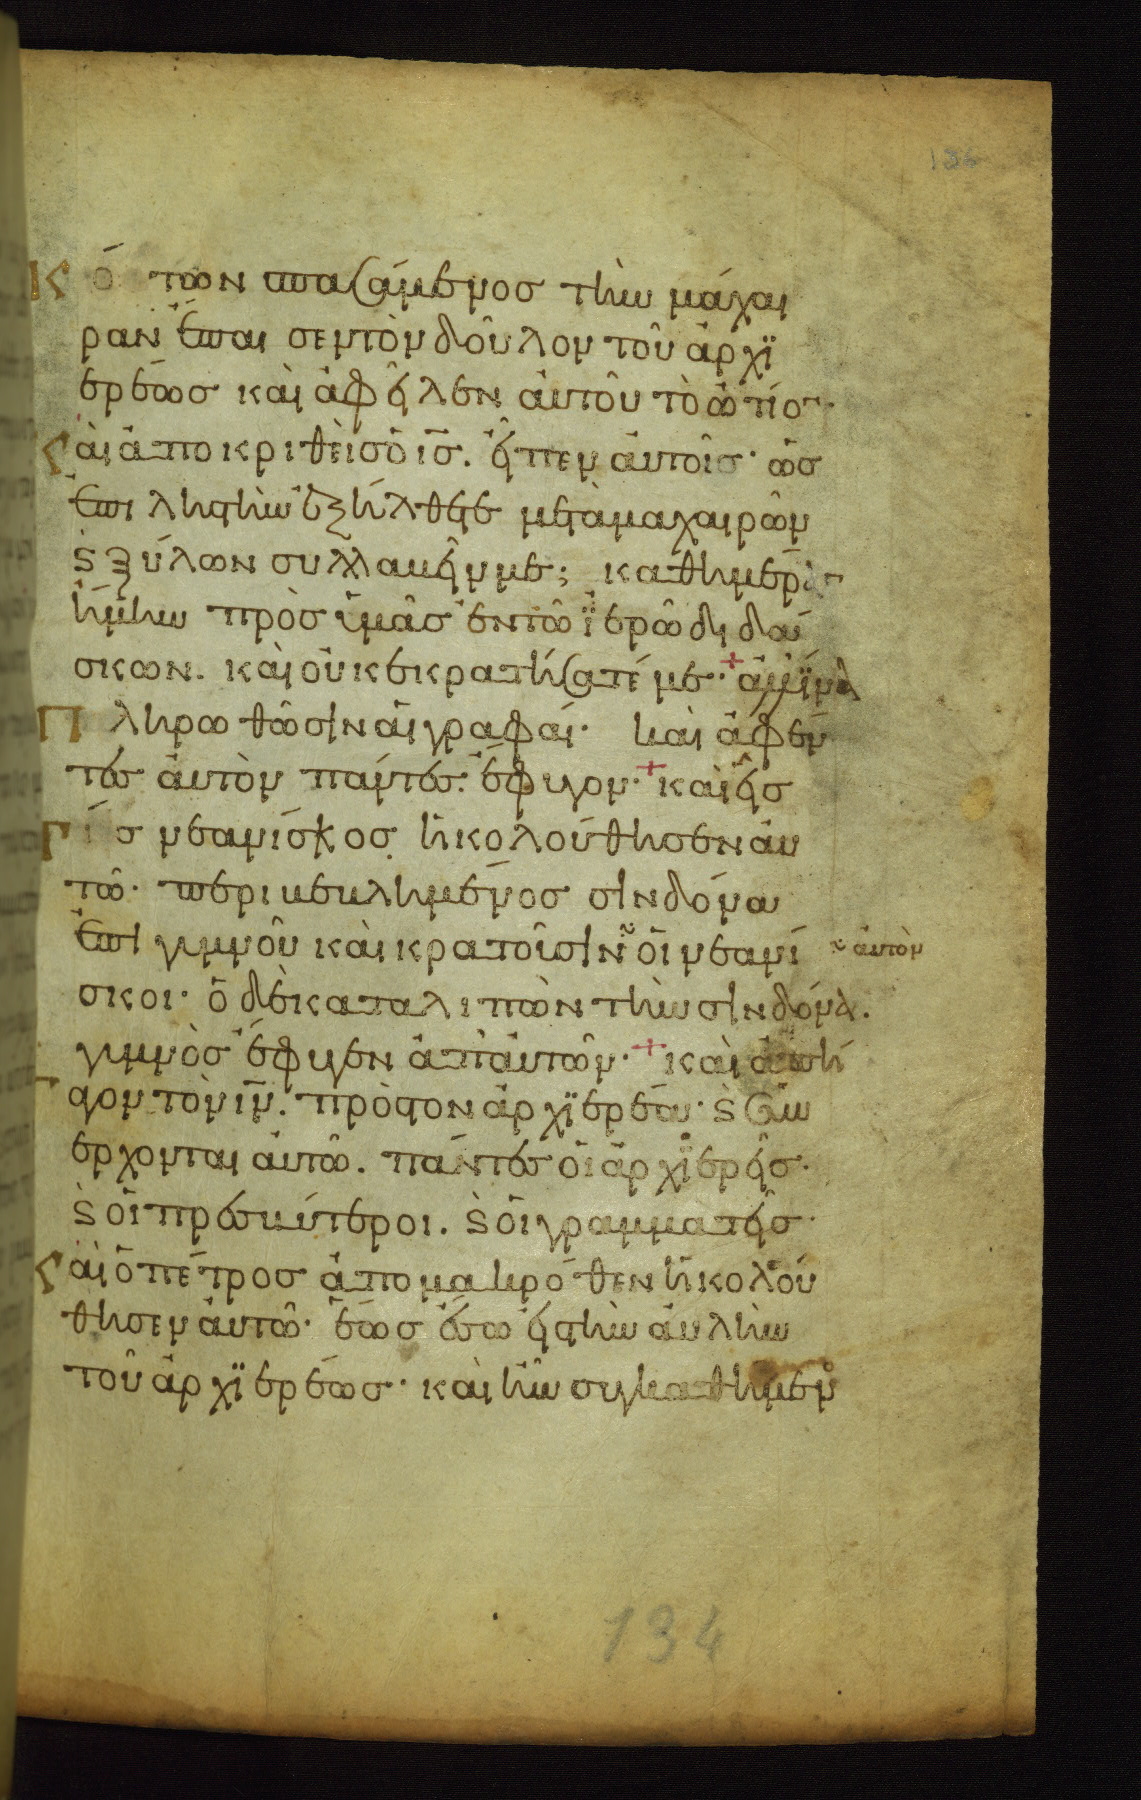 136
κό των σπασάμενος τὴν μάχαι
ραν ἔπαι σεν τὸν δοῦλον τοῦ ἀρχϊ
ερέως καὶ ἀφεῖλεν αὐτοῦ τὸ ὠτίον·
Καὶ ἀποκριθεὶς ὁ ις̅. εἶπεν αὐτοῖς· ὡς
ἐπι ληστὴν ἐξήλθετε μετὰ μαχαιρῶν
ϗ ξύλων συλλαβεῖν με; καθημέραν
ἤμην πρὸς ὑμᾶς ἐν τῶ ϊερῶ διδά
σκων. καὶ οὐκ εκρατήσατέ με· + ἀλλ' ἵνα
Πληρωθῶσιν αἱ γραφαί· καὶ ἀφέν
τες αὐτὸν πάντες. ἔφυγον· + καὶ εἷς
τίς νεανίσκος ἠκολούθησεν αὐ
τῶ· περιβεβλημένος σινδόνα
ἐπὶ γυμνοῦ καὶ κρατοῦσιν οἱ νεανί αὐτὸν
σκοι· ὁ δὲ καταλιπὼν τὴν σινδόνα.
γυμνὸς ἔφυγεν ἀπ' αὐτῶν· + καὶ ἀπή
γαγον τὸν ιν̅. πρὸς τον ἀρχϊερέα· ϗ συν
ερχονται αὐτῶ. πάντες οἱ ἀρχϊερεῖς·
ϗ οἱ πρεσβύτεροι. ϗ οἱ γραμματεῖς·
Καὶ ὁ πέτρος ἀπο μακρόθεν ἠκολού
θησεν αὐτῶ· ἕως ἔσω εἰς τὴν αὐλὴν
τοῦ ἀρχϊερέως· καὶ ἦν συγκαθήμενο
134